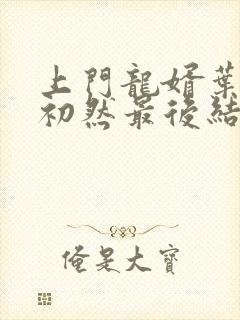 上門龍婿葉
初然最後結
俺是大寶